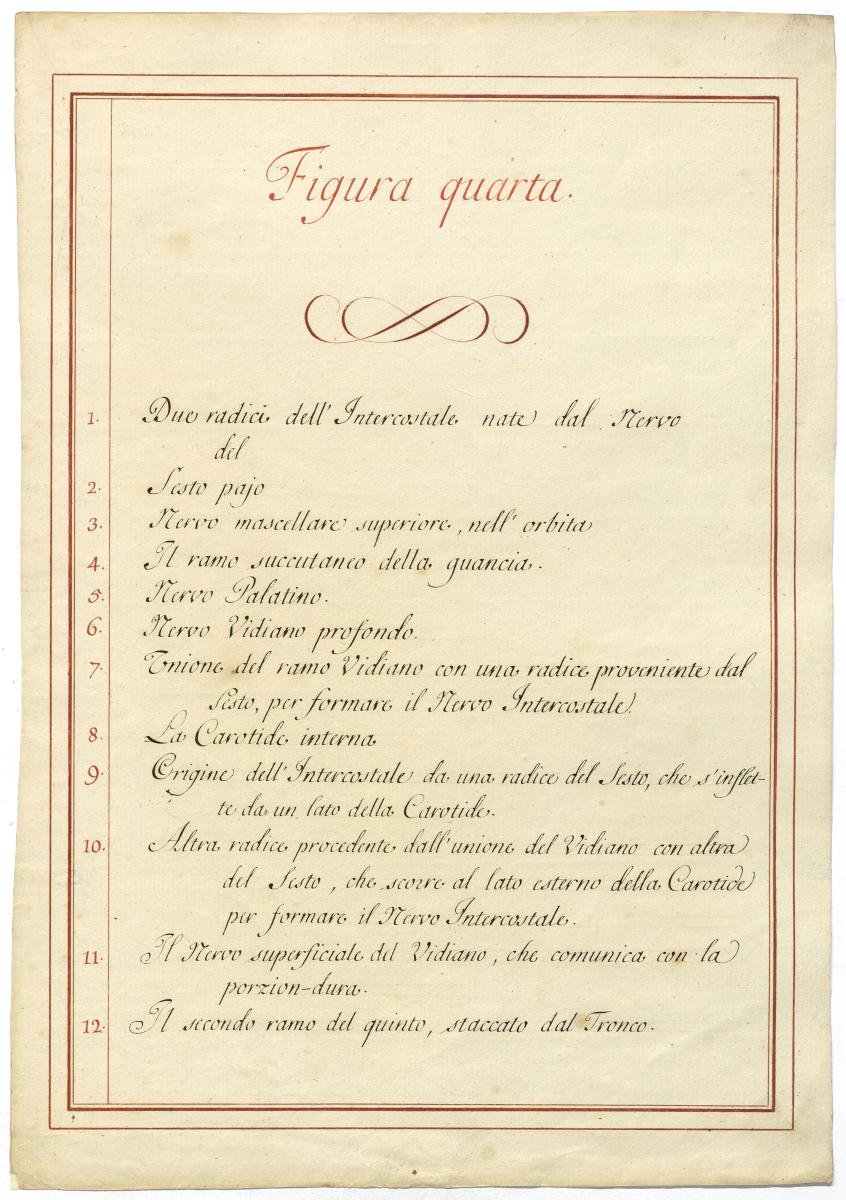 Figura quarta.
1. Due radici dell'Intercostale nate dal Nervo
del
2. Sesto pajo
3. Nervo mascellare superiore, nell'orbita
4. Il ramo succutaneo della guancia.
5. Nervo Palatino.
6. Nervo Vidiano profondo.
7. Unione del ramo Vidiano con una radice proveniente dal
Sesto, per formare il Nervo Intercostale.
8. La Carotide interna
9. Origine dell'Intercostale da una radice del Sesto, che s'inflet-
te da un lato della Carotide.
10. Altra radice procedente dall'unione del Vidiano con altra
del Sesto, che scorre al lato esterno della Carotide
per formare il Nervo Intercostale.
11. Il Nervo superficiale del Vidiano, che comunica con la
porzion-dura.
12. Il secondo ramo del quinto, staccato dal Tronco.